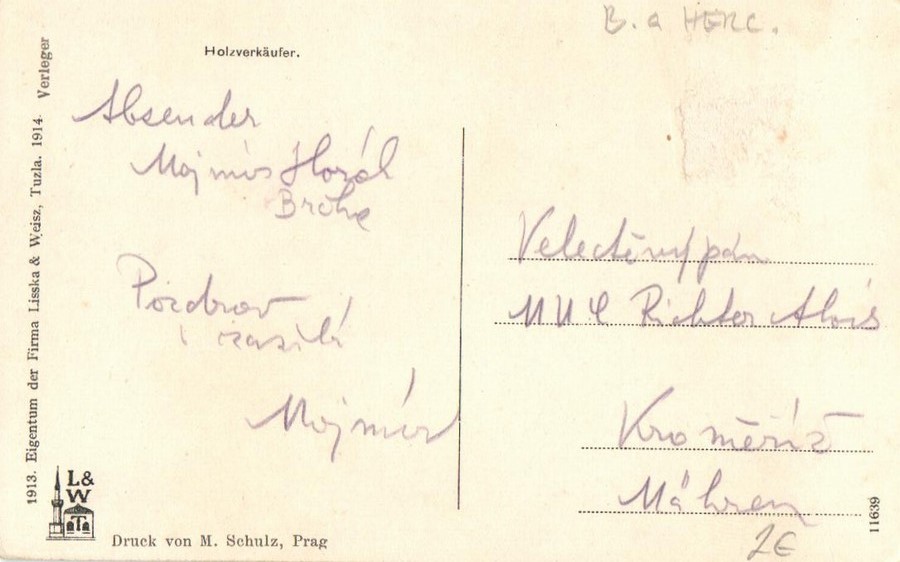 B. a HERC.
Holzverkäufer.
Absender
Mojmír
Pozdrav
zasílá
Mojmír
Velectěný pán
MUC Richter Alois
Kroměříž
Mähren
2€
1913. Eigentum der Firma Lisska & Weisz, Tuzla. 1914. Verleger
L&
W
Druck von M. Schulz, Prag
11639